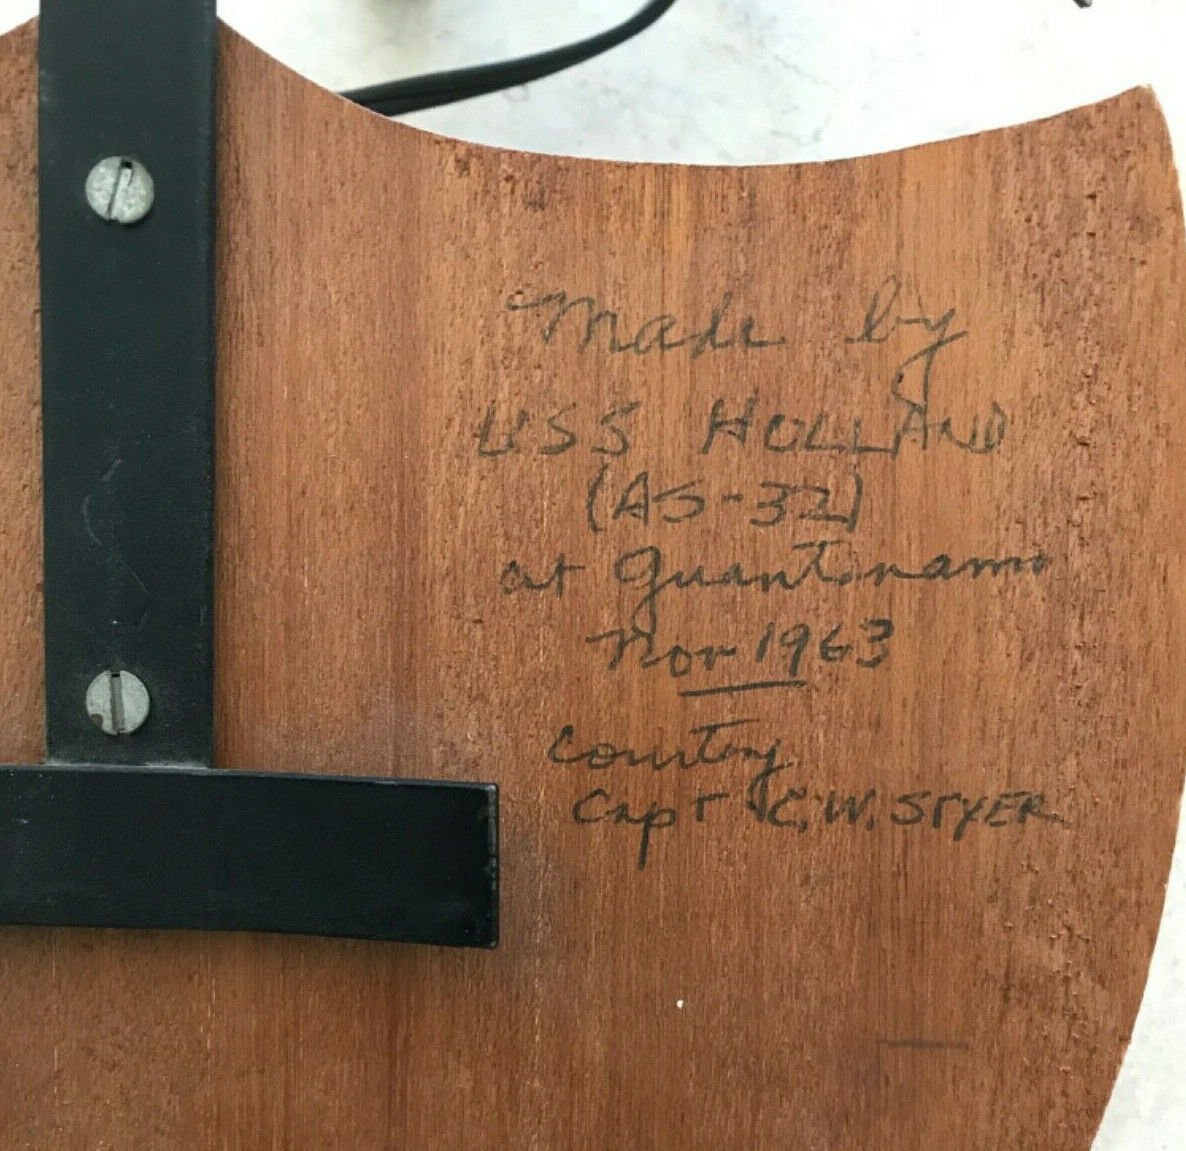 Made by
USS HOLLAND
(AS-32)
at Guantinamo
Nov 1963
Courtesy
Capt C.W. STYER